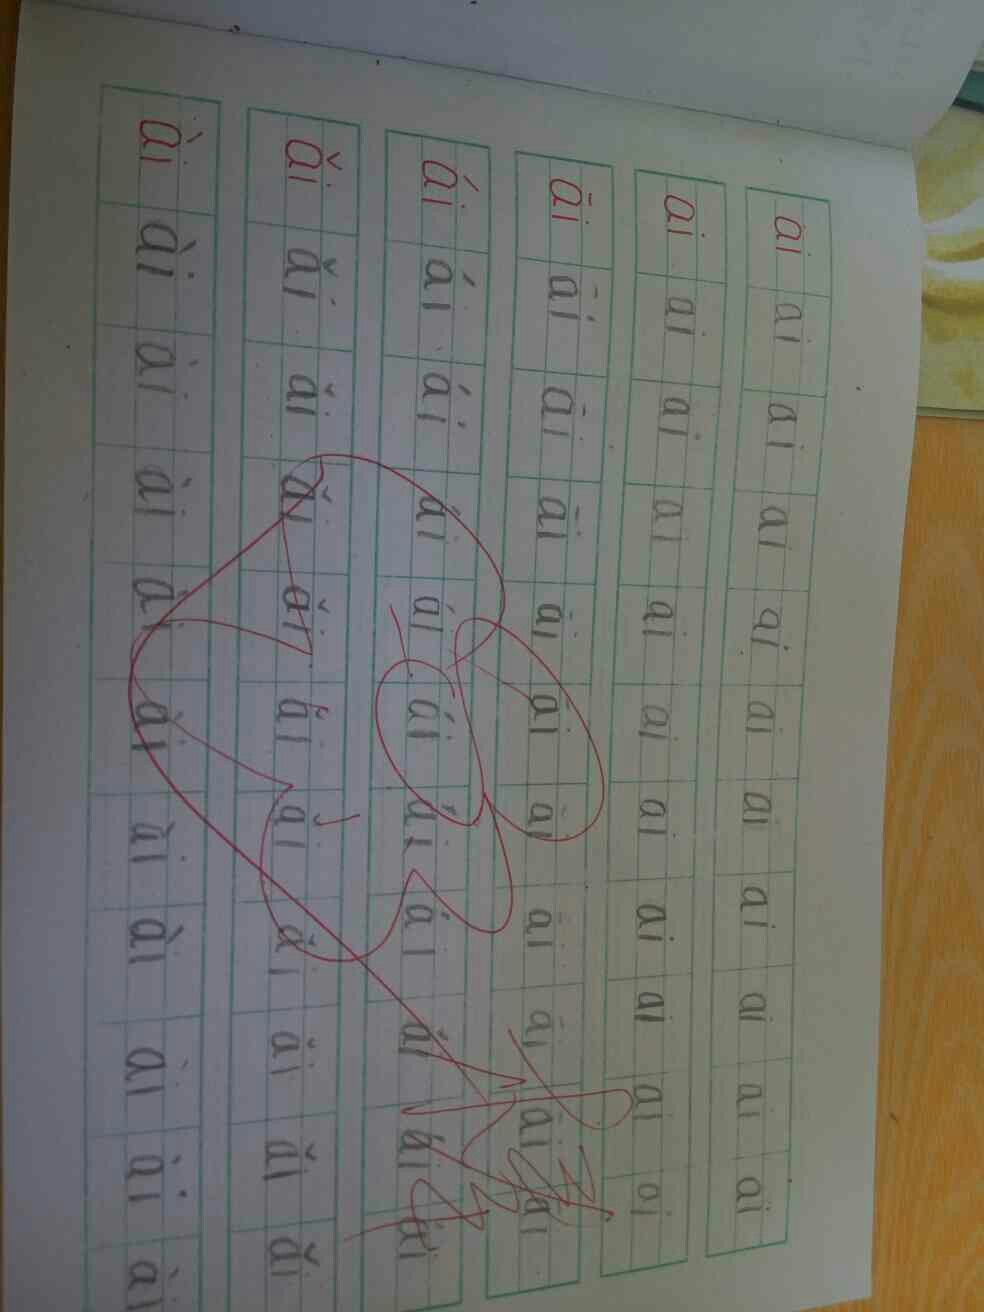 ai ai ai ai ai ai ai ai ai ai ai
ai ai ai ai ai ai ai ai ai ai ai
āi āi āi āi āi āi āi āi āi āi āi
ái ái ái ái ái ái ái ái ái ái ái
ǎi ǎi ǎi ǎi ǎi ǎi ǎi ǎi ǎi ǎi ǎi
ài ài ài ài ài ài ài ài ài ài ài